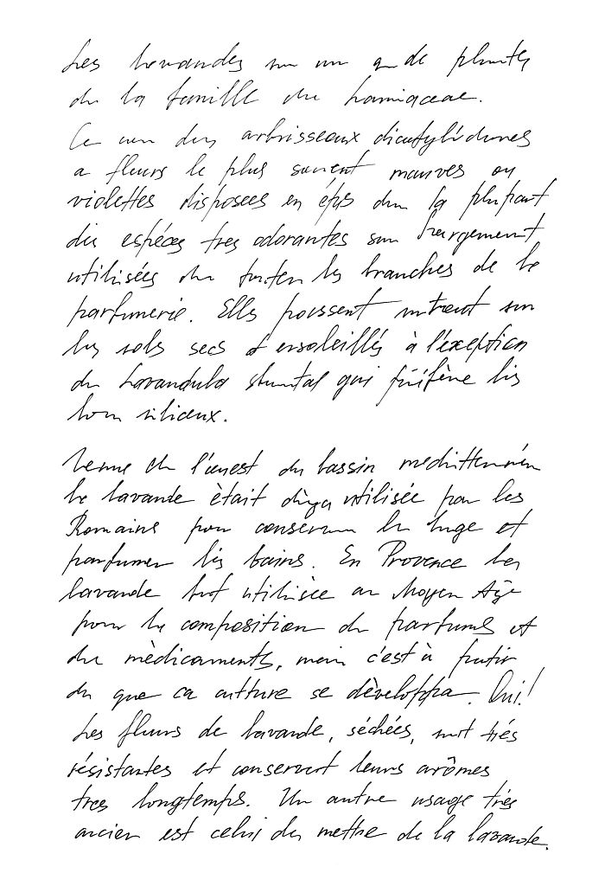 Les lavandes un de plantes
de la famille de Lamiaceae.
Ce des arbrisseaux dicotylédones
a fleurs le plus souvent mauves ou
violettes disposées en épis la plupart
des espéces tres odorantes sont largement
utilisées les branches de la
parfumerie. Elles poussent surtout sur
les sols secs et ensoleillés à l'exeption
du Lavandula qui préfére les
siliceux.
de l'ouest du bassin
la lavande était utilisée par les
Romains pour conserver le linge et
parfumer les bains. En Provence la
lavande fut utilisée au Moyen Age
pour la composition de parfums et
des mèdicaments, mais c'est à partir
du que sa culture se dèveloppa. Oui!
Les fleurs de lavande, séchées, sont trés
résistantes et conservent leurs arômes
tres longtemps. Un autre usage trés
ancien est celui de mettre de la lavande.